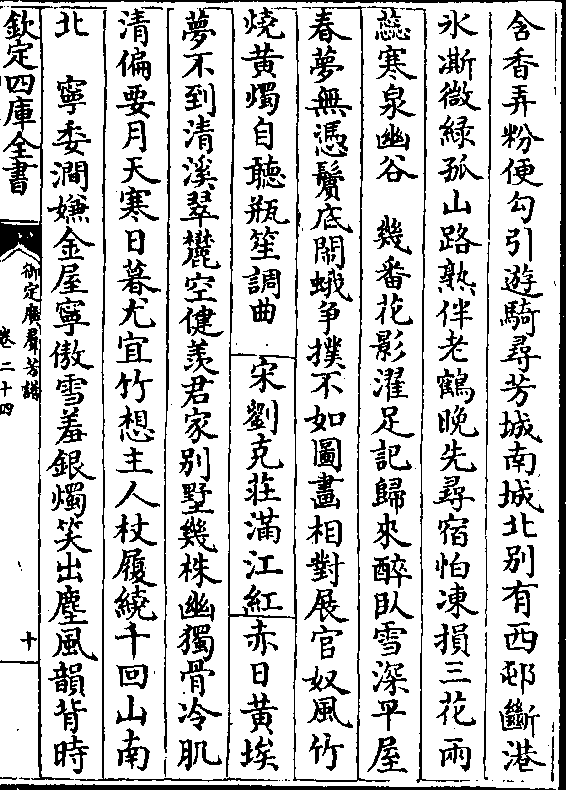 含香弄粉便勾引遊騎尋芳城南城北别有西邨斷港
氷澌微緑孤山路熟伴老鶴晚先尋宿怕凍損三花兩
蕊寒泉幽谷　幾番花影濯足記歸來醉臥雪深平屋
春夢無憑鬢底閙蛾争撲不如圖畫相對展官奴風竹
燒黄燭自聽瓶笙調曲　宋劉克莊滿江紅　赤日黄埃
夢不到清溪翠麓空健羡君家别墅幾株幽獨骨冷肌
清偏要月天寒日暮尤宜竹想主人杖履繞千回山南
北　寧委澗嫌金屋寧傲雪羞銀燭笑出塵風韻背時
欽定四庫全書
御定廣羣芳譜
卷二十四
十